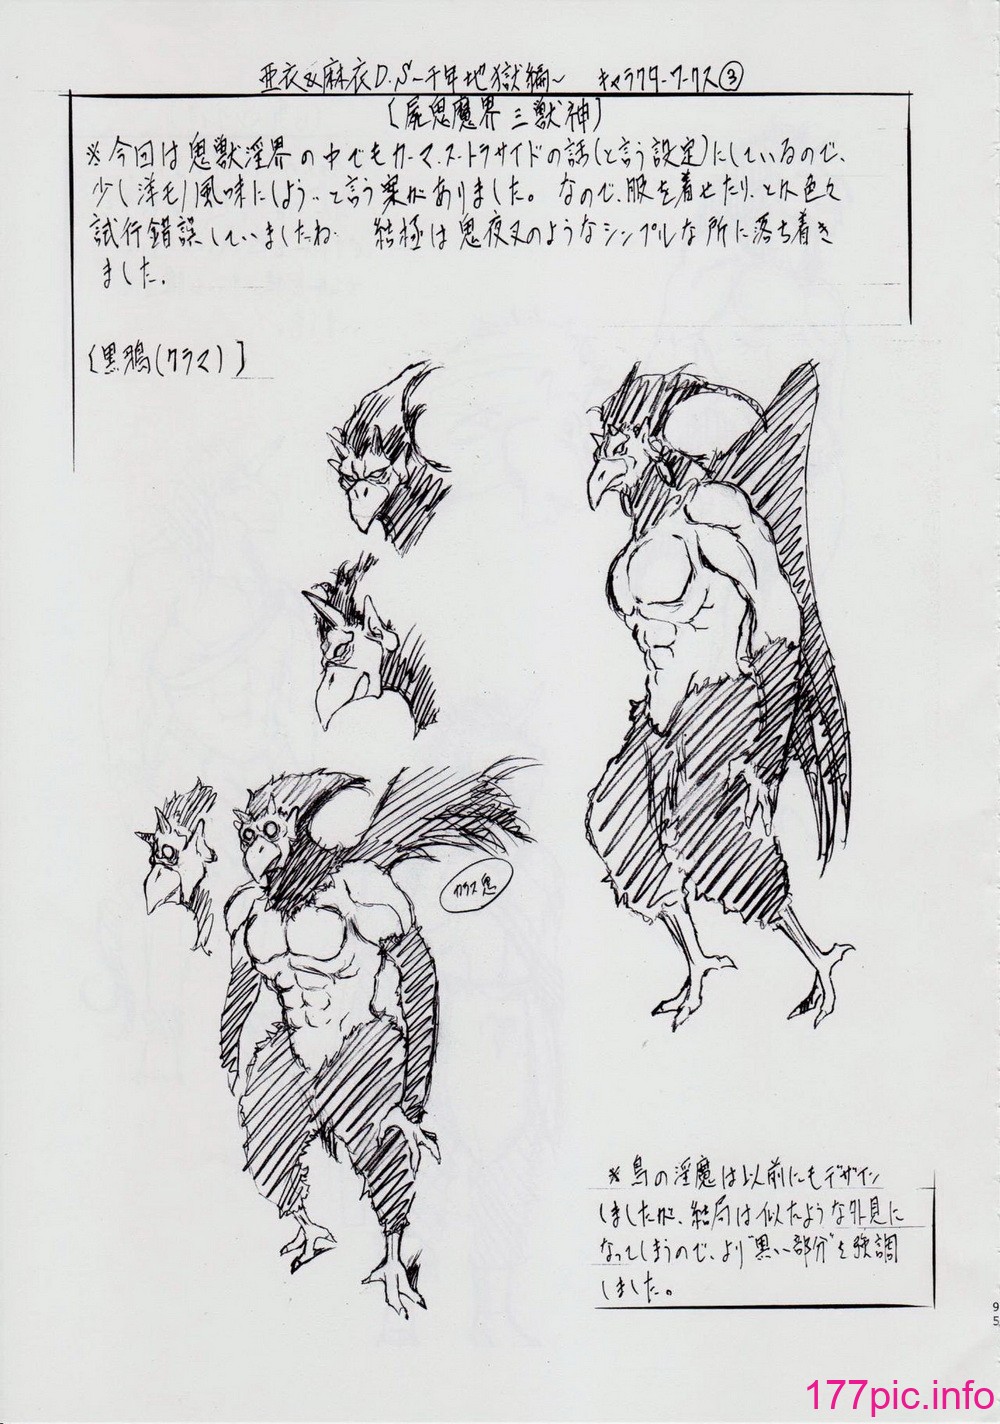 亜衣&麻衣D.S～千年地獄編～ キャラクターワークス③
〔屍鬼魔界三獣神〕
※今回は鬼獣淫界の中でもカーマ・スートラサイドの話(と言う設定)にしているので、
少し洋モノ風味にしよう…と言う案がありました。なので、服を着せたり、とか色々
試行錯誤していましたね。 結極は鬼夜叉のようなシンプルな所に落ち着き
ました。
〔黒鴉(クラマ)〕
カラス鬼
※鳥の淫魔は以前にもデザイン
しましたが、結局は似たような外見に
なってしまうので、より"黒い部分"を強調
しました。
9
5
177pic.info